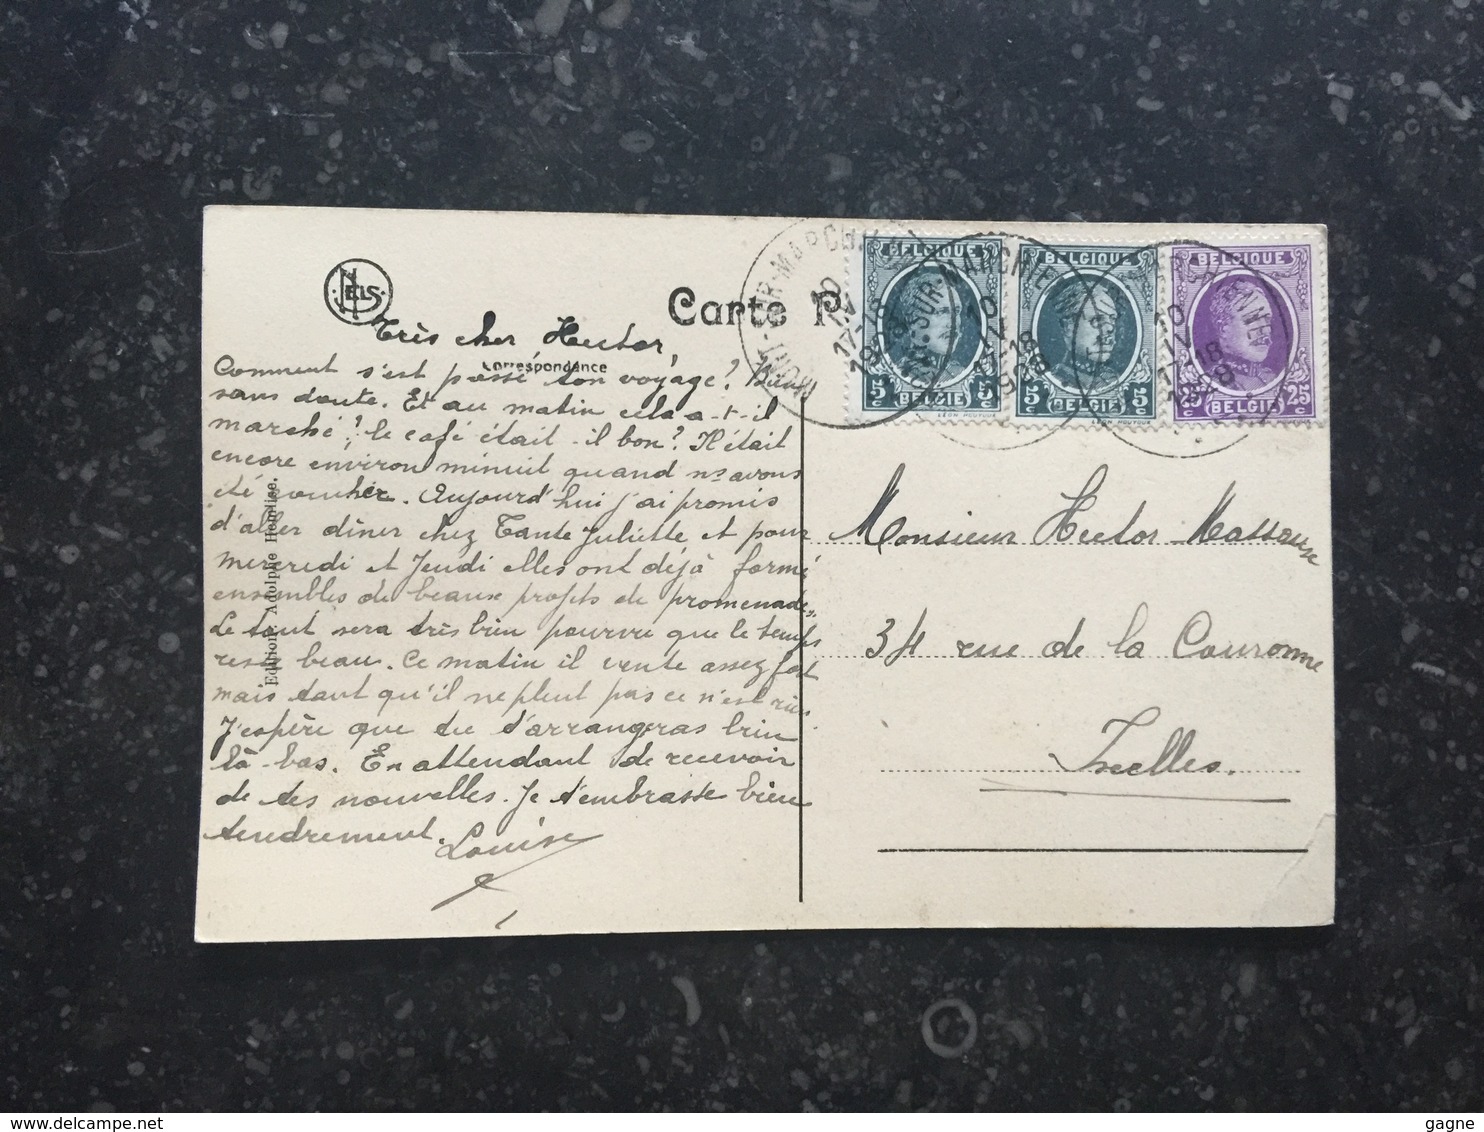 NELS
Carte P
Correspondance
Edition: Adolphe
Très cher Hector,
Comment s'est passé ton voyage? Bien
sans doute. Et au matin cela a-t-il
marché? le café était-il bon? Il était
encore environ minuit quand ns avons
été coucher. Aujourd'hui j'ai promis
d'aller dîner chez Tante Juliette et pour
mercredi et Jeudi elles ont déjà formé
ensembles de beaux projets de promenades.
Le tout sera très bien pourvu que le temps
reste beau. Ce matin il vente assez fort
mais tant qu'il ne pleut pas ce n'est rien
J'espère que tu t'arrangeras bien
là-bas. En attendant de recevoir
de tes nouvelles. Je t'embrasse bien
tendrement.
Louise
MONT-SUR-MARCHIENNE
10
IV
17-18
1928
BELGIQUE
5 c BELGIE 5 c
LÉON HOUYOUX
BELGIQUE
5 c BELGIE 5 c
LÉON HOUYOUX
BELGIQUE
25 c BELGIE 25 c
Monsieur Hector
34 rue de la Couronne
Ixelles.
gagne